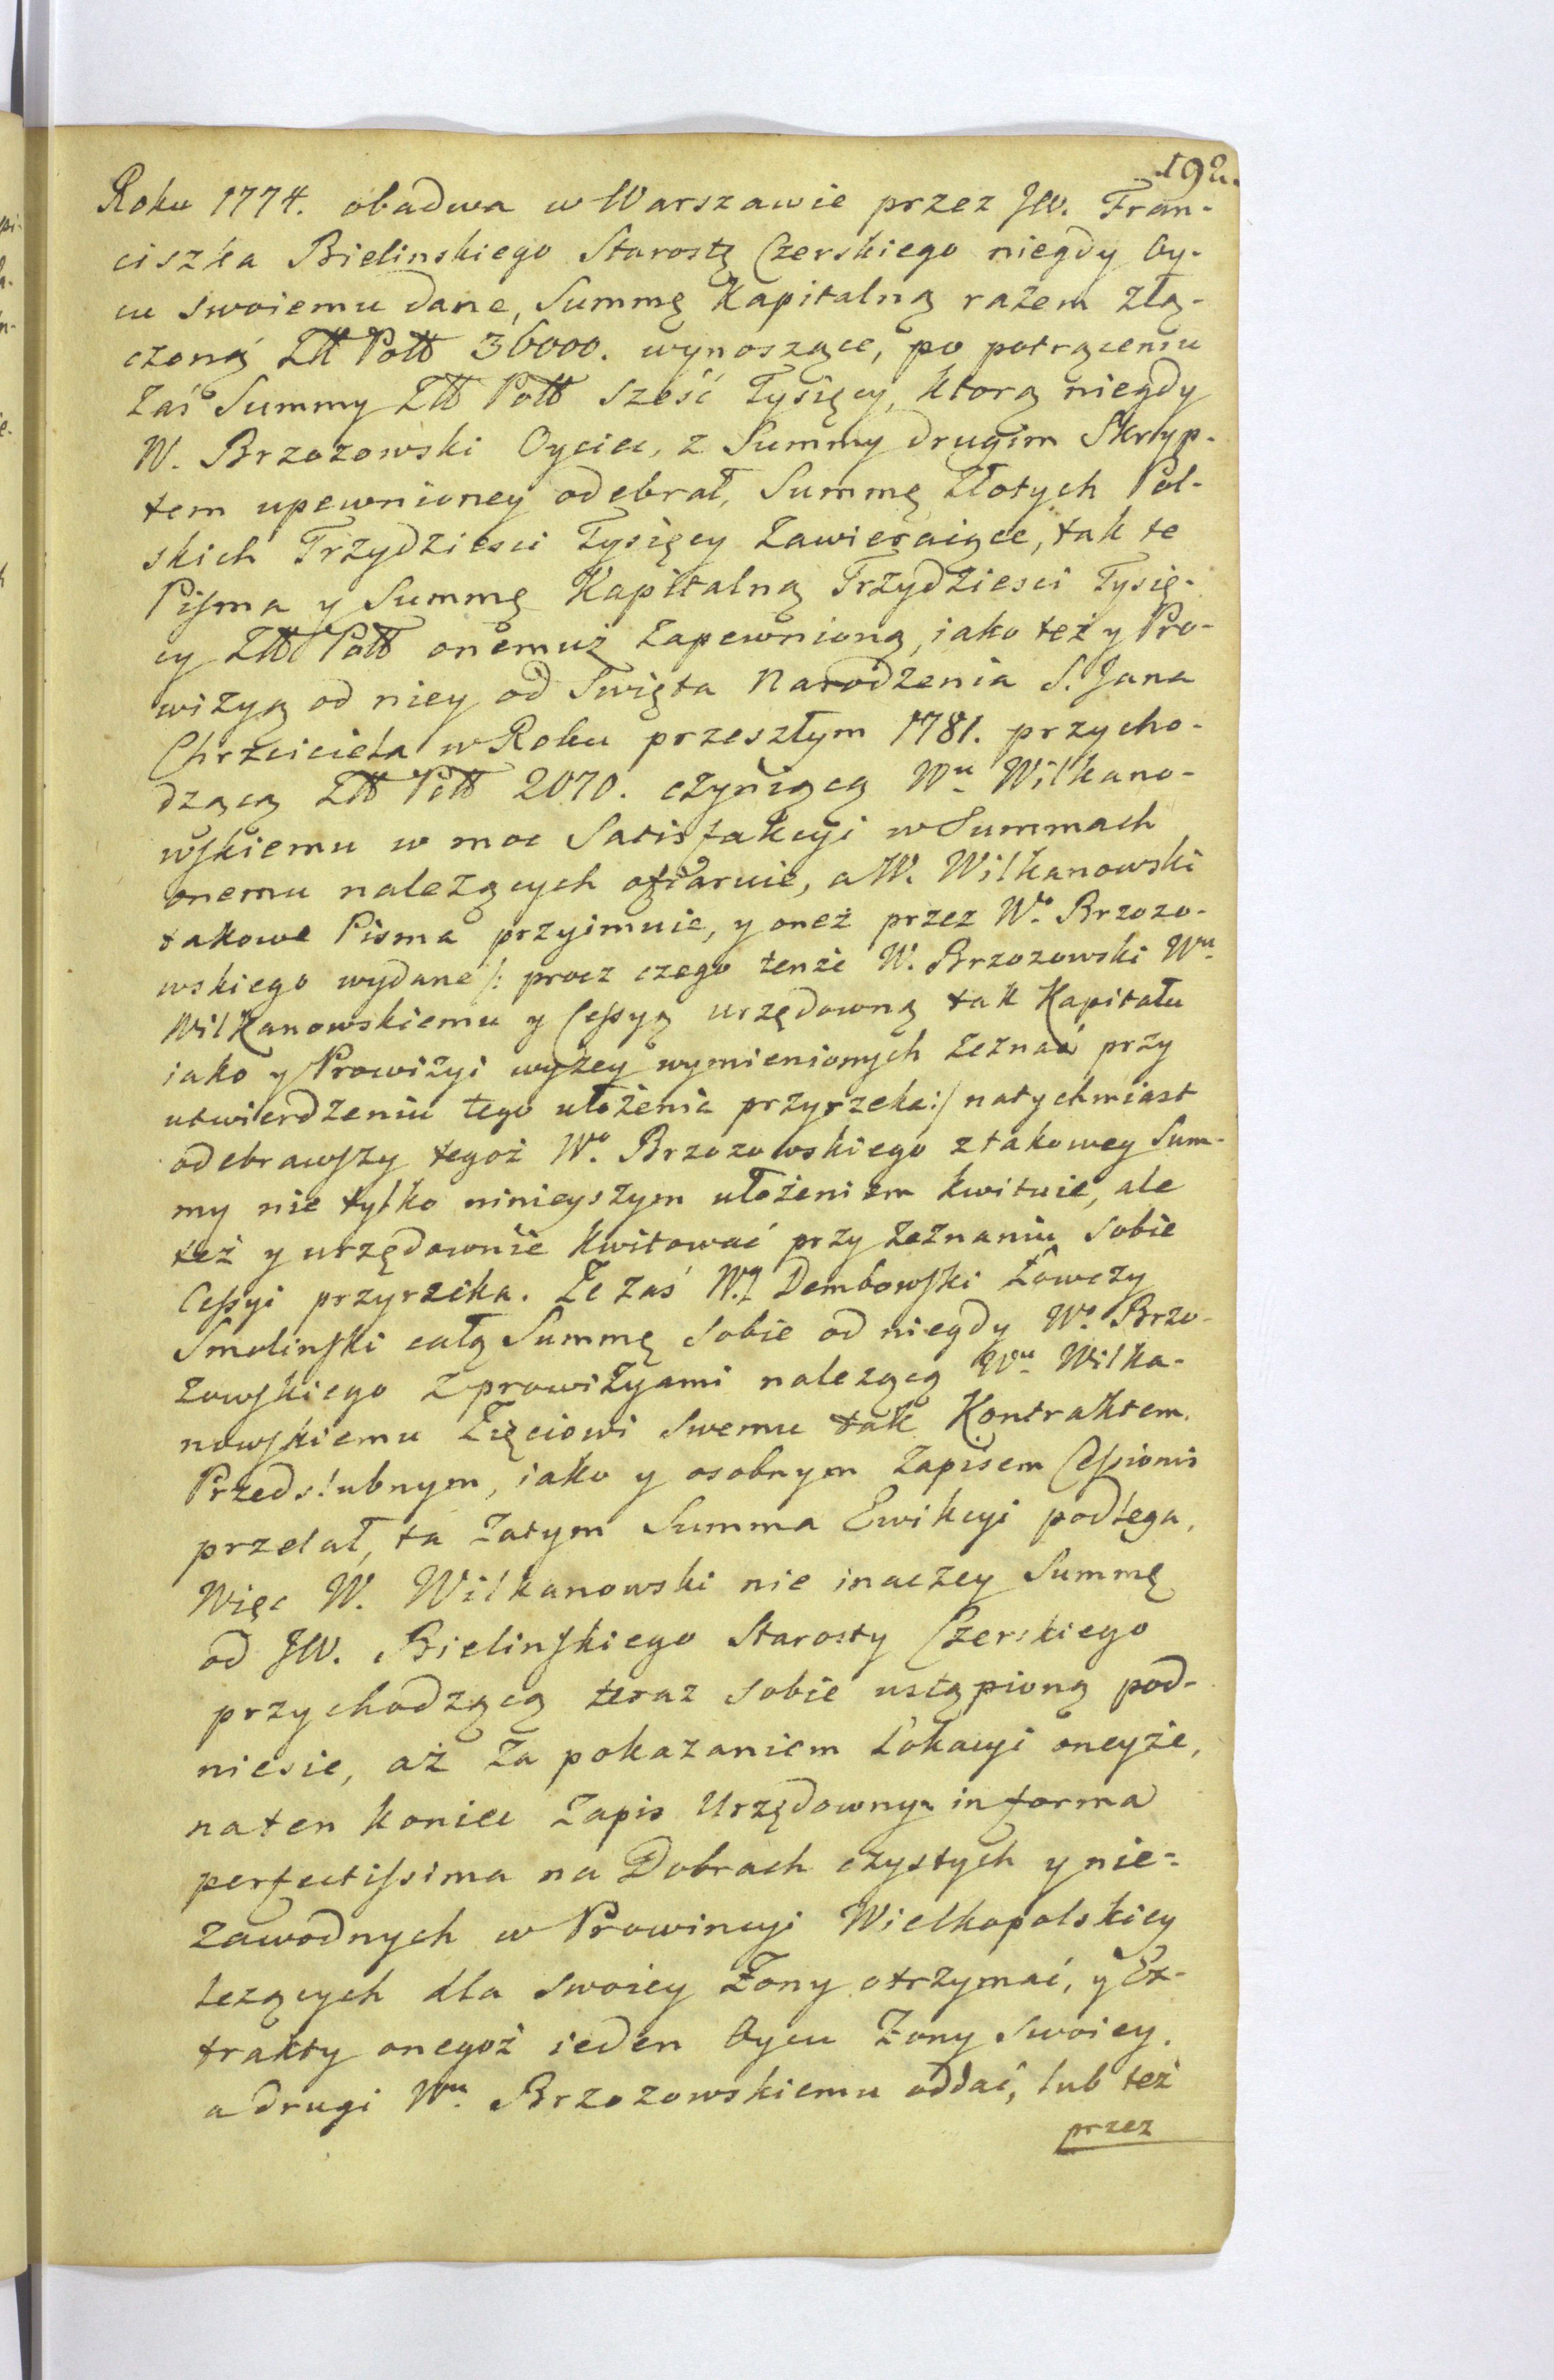 192.
Roku 1774. obadwa w Warszawie przez JW. Fran-
ciszka Bielinskiego Starostę Czerskiego niegdy Oy-
cu swoiemu dane, Summę Kapitalną razem złą-
czoną Złł Poll 36000. wynoszące, po potrąceniu
zaś Summy Złł Poll sześć Tysięcy, ktorą niegdy
W. Brzozowski Oyciec, z Summy drugim Skryp-
tem upewnioney odebrał, Summę Złotych Pol-
skich Trzydziesci Tysięcy zawieraiące, tak te
Pisma y Summę Kapitalną Trzydziesci Tysię-
cy Złł Poll onemuż zapewnioną, iako też y Pro-
wizyą od niey od Swięta Narodzenia S. Jana
Chrzciciela w Roku przeszłym 1781. przycho-
dzącą Złł Poll 2070. czyniącą Wu. Wilkano-
wskiemu w moc Satisfakcyi w Summach
onemu należących ofiaruie, a W. Wilkanowski
takowe Pisma przyimuie, y oneż przez Wo. Brzozo-
wskiego wydane /: procz czego tenże W. Brzozowski Wu.
Wilkanowskiemu y Cessyą urzędowną tak Kapitału
iako y Prowizyi wyżey wymienionych zeznać przy
utwierdzeniu tego ułożenia przyrzeka :/ natychmiast
odebrawszy tegoż Wo. Brzozowskiego z takowey Sum-
my nie tylko ninieyszym ułożeniem kwituie, ale
też y urzędownie kwitować przy zeznaniu sobie
Cessyi przyrzeka. Ze zaś W.J Dembowski Łowczy
Smolinski całą Summę sobie od niegdy Wo. Brzo-
zowskiego z prowizyami należącą Wu. Wilka-
nowskiemu Zięciowi swemu tak Kontraktem
Przedslubnym, iako y osobnym Zapisem Cessionis
przelał, ta zatym Summa Ewikcyi podlega,
Więc W. Wilkanowski nie inaczey Summę
od JW. Bielinskiego Starosty Czerskiego
przychodzącą teraz sobie ustąpioną pod-
niesie, aż za pokazaniem Lokacyi oneyże,
na ten koniec Zapis Urzędowny in forma
perfectissima na Dobrach czystych y nie-
zawodnych w Prowincyi Wielkopolskiey
leżących dla swoiey Żony otrzymać, y Ex-
trakty onegoż ieden Oycu Żony swoiey,
a drugi Wu. Brzozowskiemu oddać, lub też
przez